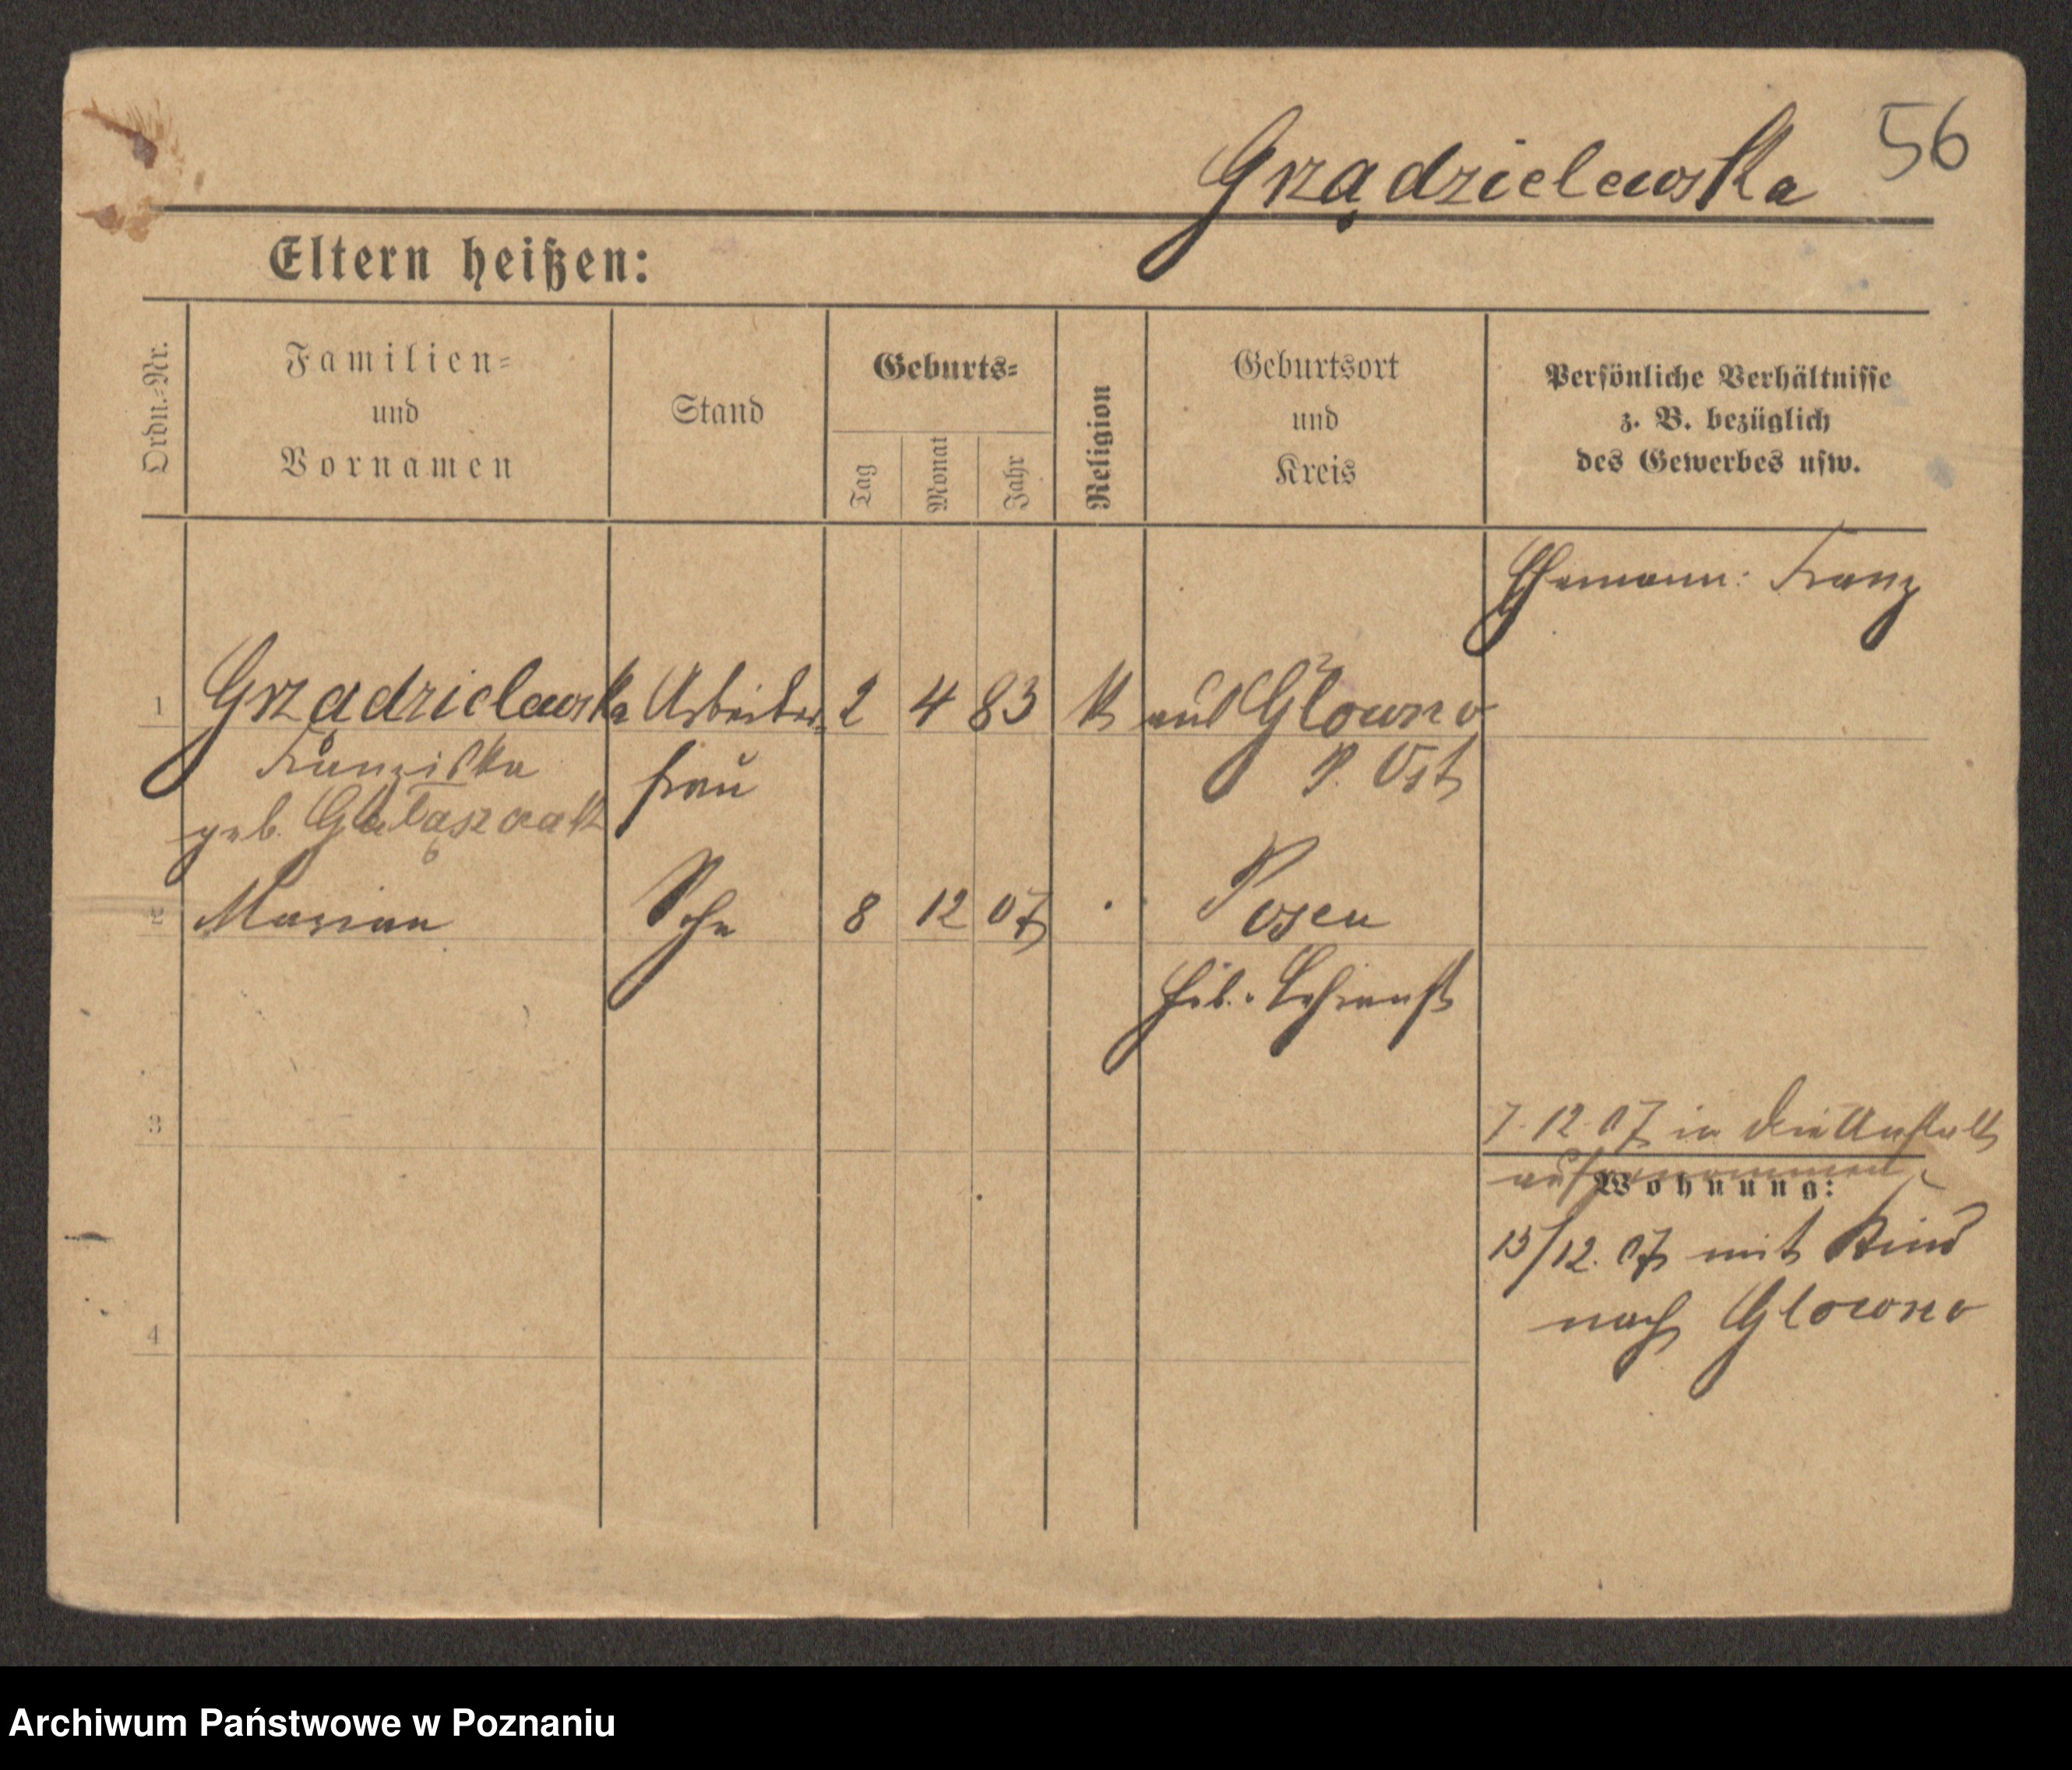 56
Grządzielewska
Eltern heißen:
Ordn.-Nr.
Familien-
und
Vornamen
Stand
Geburts-
Tag
Monat
Jahr
Religion
Geburtsort
und
Kreis
Persönliche Verhältnisse
z. B. bezüglich
des Gewerbes usw.
Ehemann: Franz
1 Grządzielewska Arbeiter- 2 4 83 k aus Głowno
Franziska frau P. Ost
geb.
2 Marian Sohn 8 12 07 Posen
Heb. Lehranst
3
7.12.07 in die Anstalt
aufgenommen
Wohnung:
15/12.07 mit Kind
nach Glowno
4
Archiwum Państwowe w Poznaniu